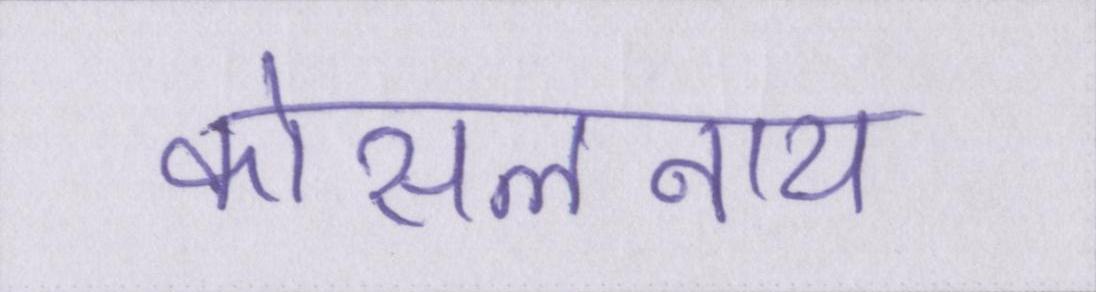 कोसलनाय